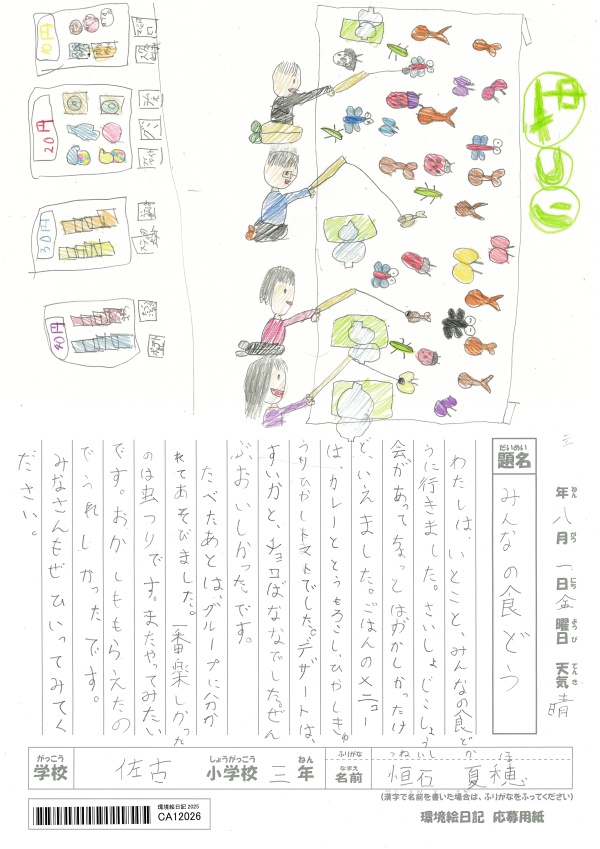 虫つり
10円
20円
30円
40円
だいめい
題名
みんなの食どう
年 八月 一日 金曜日 天気 晴
ねん がつ にち ようび てんき
わたしは、いとこと、みんなの食ど
うに行きました。さいしょじこしょう
会があってちょっとはずかしかったけ
ど、いえました。ごはんのメニュー
は、カレーととうもろこし、ひやしきゅ
うりひやしトマトでした。デザートは、
すいかと、チョコばななでした。ぜん
ぶおいしかったです。
たべたあとは、グループに分か
れてあそびました。一番楽しかった
のは虫つりです。またやってみたい
です。おかしももらえたの
でうれしかったです。
みなさんもぜひいってみてく
ださい。
がっこう しょうがっこう ねん
学校 佐古 小学校 三年
ふりがな つねいし かほ
なまえ
名前 恒石 夏穂
(漢字で名前を書いた場合は、ふりがなをふってください)
環境絵日記 2025
CA12026
環境絵日記 応募用紙